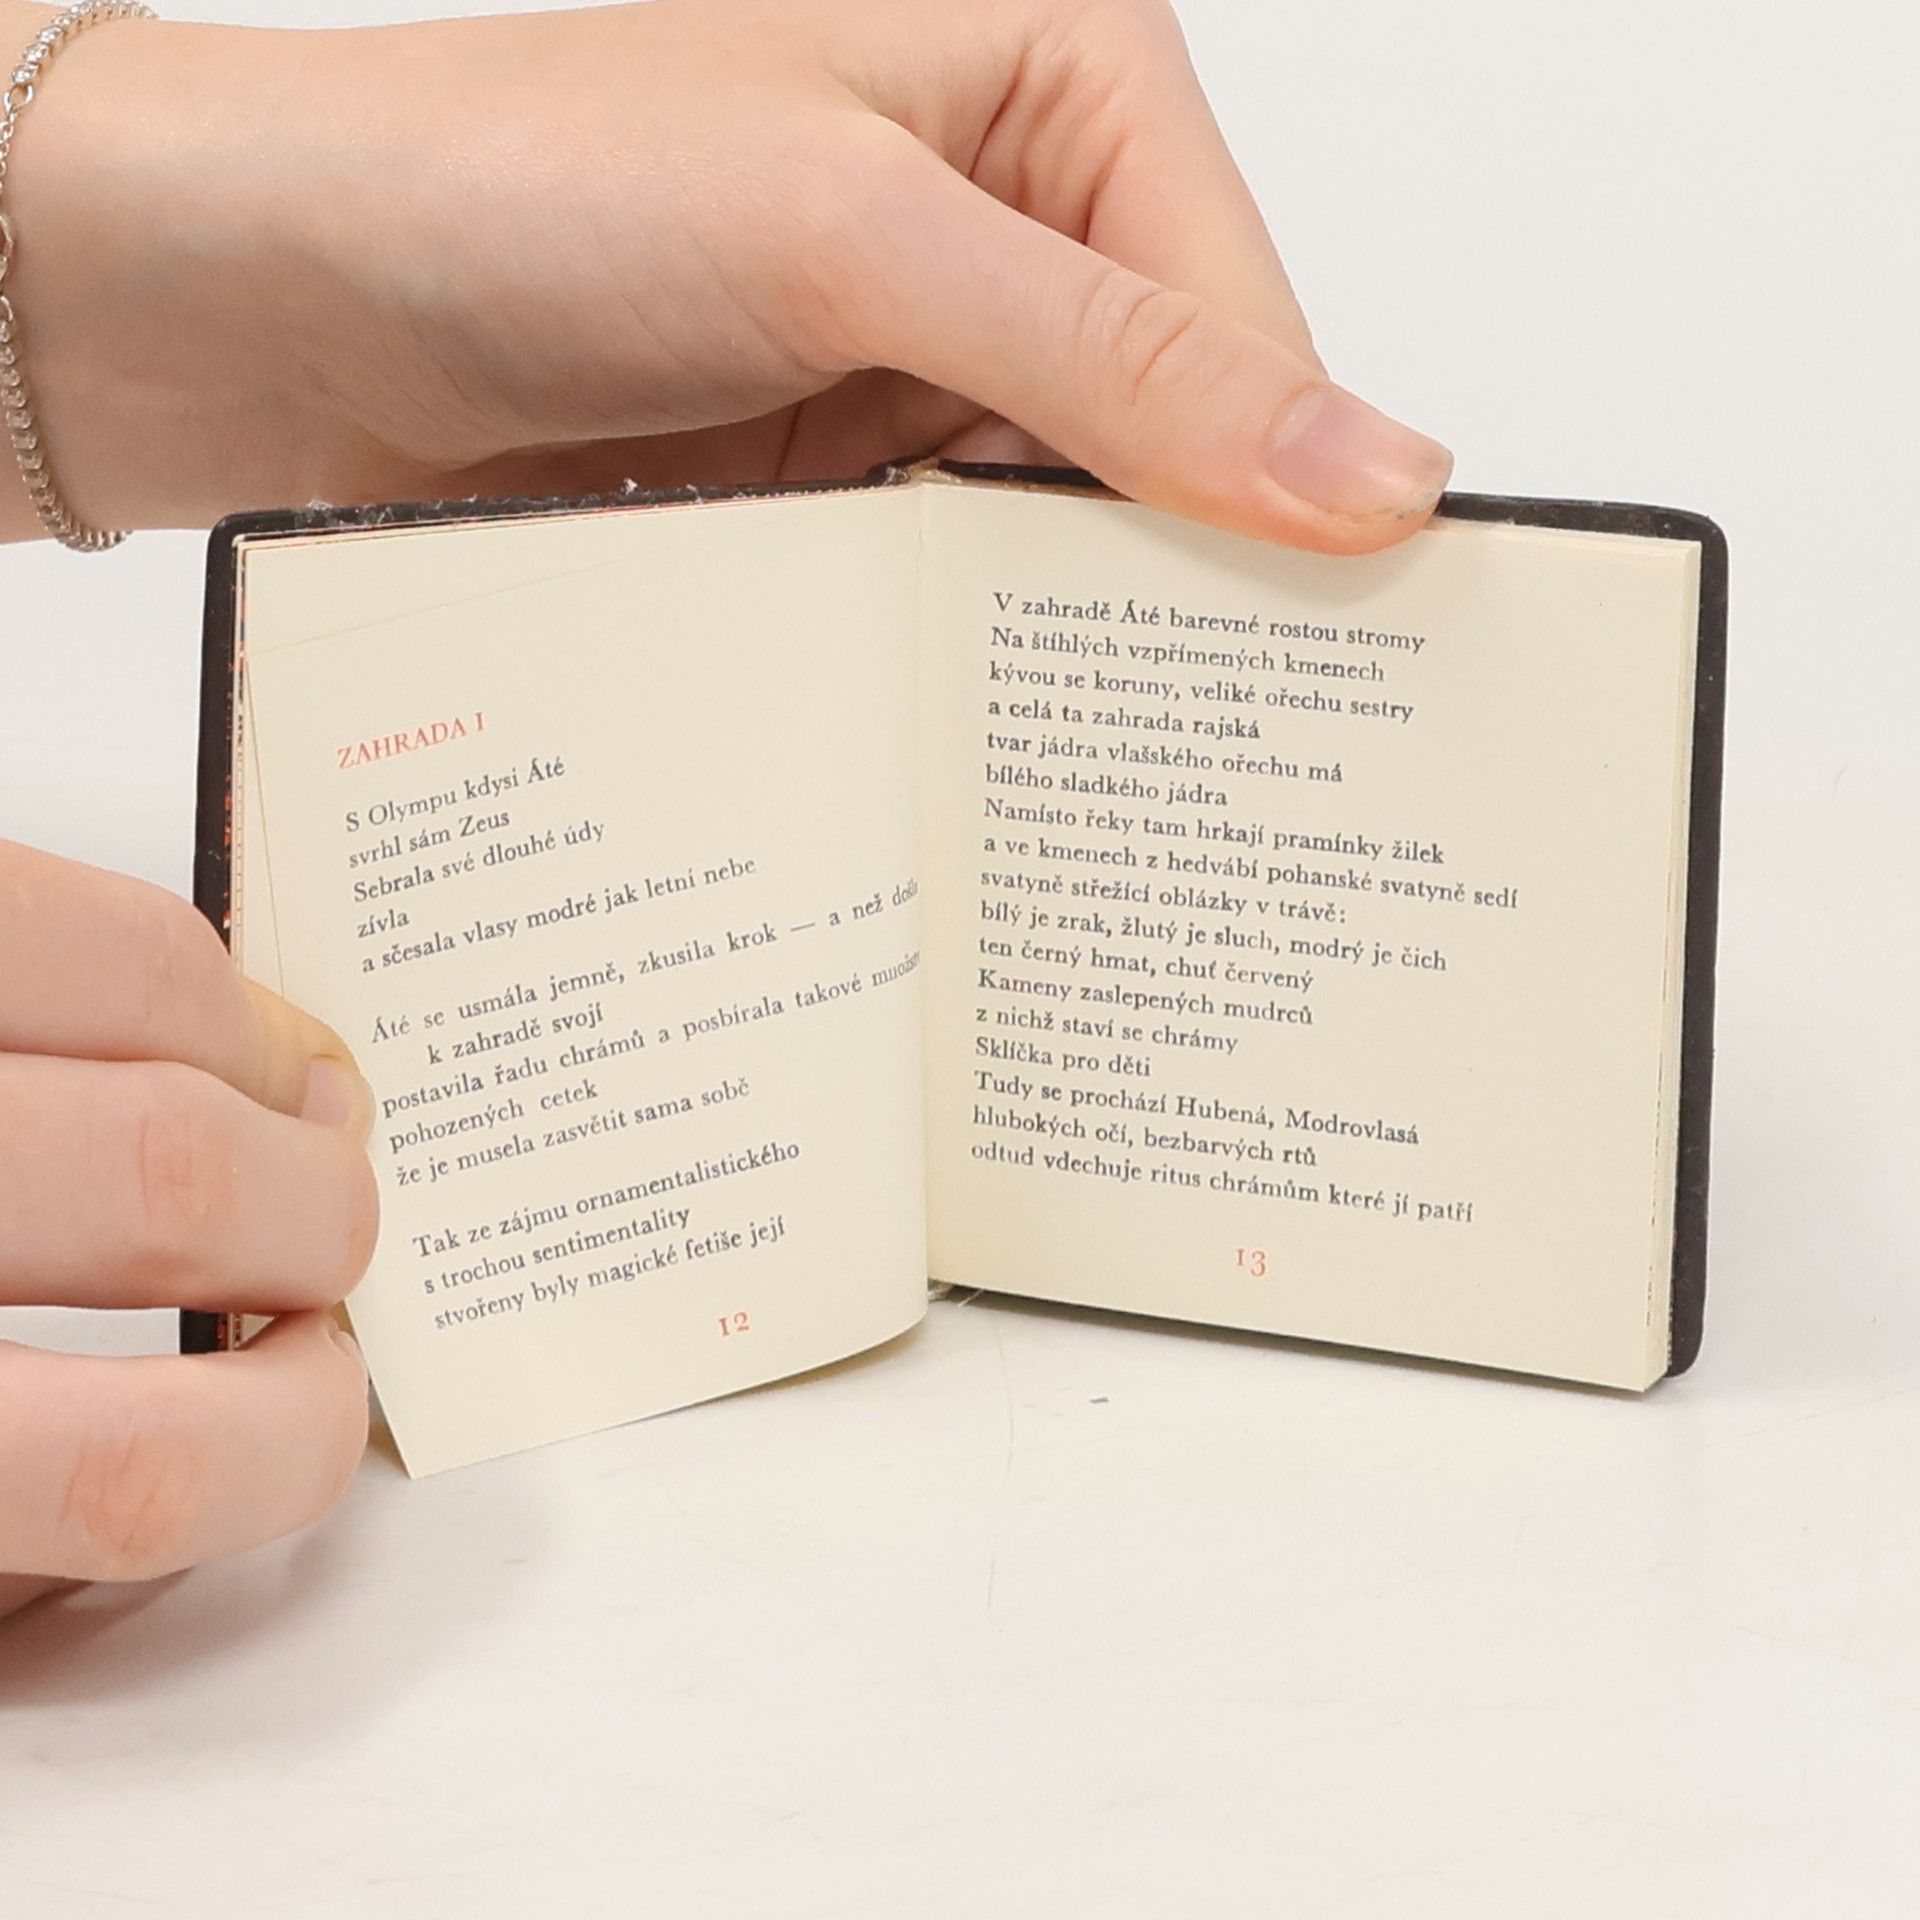 ZAHRADA I
S Olympu kdysi Áté
svrhl sám Zeus
Sebrala své dlouhé údy
zívla
a sčesala vlasy modré jak letní nebe
Áté se usmála jemně, zkusila krok — a než
k zahradě svojí
postavila řadu chrámů a posbírala takové
pohozených cetek
že je musela zasvětit sama sobě
Tak ze zájmu ornamentalistického
s trochou sentimentality
stvořeny byly magické fetiše její
12
V zahradě Áté barevné rostou stromy
Na štíhlých vzpřímených kmenech
kývou se koruny, veliké ořechu sestry
a celá ta zahrada rajská
tvar jádra vlašského ořechu má
bílého sladkého jádra
Namísto řeky tam hrkají pramínky žilek
a ve kmenech z hedvábí pohanské svatyně sedí
svatyně střežící oblázky v trávě:
bílý je zrak, žlutý je sluch, modrý je čich
ten černý hmat, chuť červený
Kameny zaslepených mudrců
z nichž staví se chrámy
Sklíčka pro děti
Tudy se prochází Hubená, Modrovlasá
hlubokých očí, bezbarvých rtů
odtud vdechuje ritus chrámům které jí patří
13